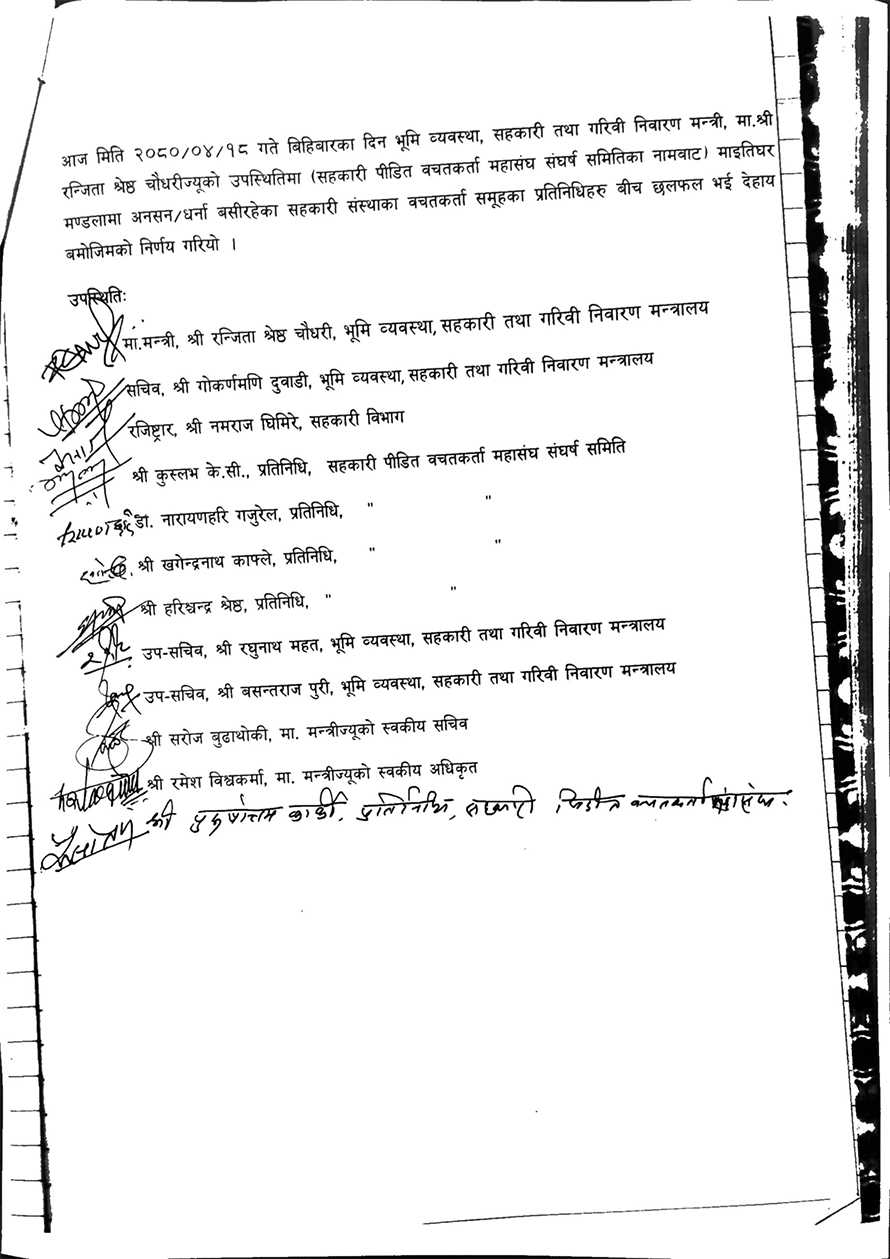 आज मिति २०८०/०४/१८ गते बिहिबारका दिन भूमि व्यवस्था, सहकारी तथा गरिवी निवारण मन्त्री, मा.श्री
रन्जिता श्रेष्ठ चौधरीज्यूको उपस्थितिमा (सहकारी पीडित वचतकर्ता महासंघ संघर्ष समितिका नामवाट) माइतिघर
मण्डलामा अनसन/धर्ना बसीरहेका सहकारी संस्थाका वचतकर्ता समूहका प्रतिनिधिहरु बीच छलफल भई देहाय
बमोजिमको निर्णय गरियो ।
उपस्थितिः
मा.मन्त्री, श्री रन्जिता श्रेष्ठ चौधरी, भूमि व्यवस्था, सहकारी तथा गरिवी निवारण मन्त्रालय
सचिव, श्री गोकर्णमणि दुवाडी, भूमि व्यवस्था, सहकारी तथा गरिवी निवारण मन्त्रालय
रजिष्ट्रार, श्री नमराज घिमिरे, सहकारी विभाग
श्री कुस्लभ के.सी., प्रतिनिधि, सहकारी पीडित वचतकर्ता महासंघ संघर्ष समिति
डा. नारायणहरि गजुरेल, प्रतिनिधि, " "
श्री खगेन्द्रनाथ काफ्ले, प्रतिनिधि, " "
श्री हरिश्चन्द्र श्रेष्ठ, प्रतिनिधि, " "
उप-सचिव, श्री रघुनाथ महत, भूमि व्यवस्था, सहकारी तथा गरिवी निवारण मन्त्रालय
उप-सचिव, श्री बसन्तराज पुरी, भूमि व्यवस्था, सहकारी तथा गरिवी निवारण मन्त्रालय
श्री सरोज बुढाथोकी, मा. मन्त्रीज्यूको स्वकीय सचिव
श्री रमेश विश्वकर्मा, मा. मन्त्रीज्यूको स्वकीय अधिकृत
श्री पुरुषोत्तम कार्की, प्रतिनिधि, सहकारी पिडीत बचतकर्ता महासंघ.